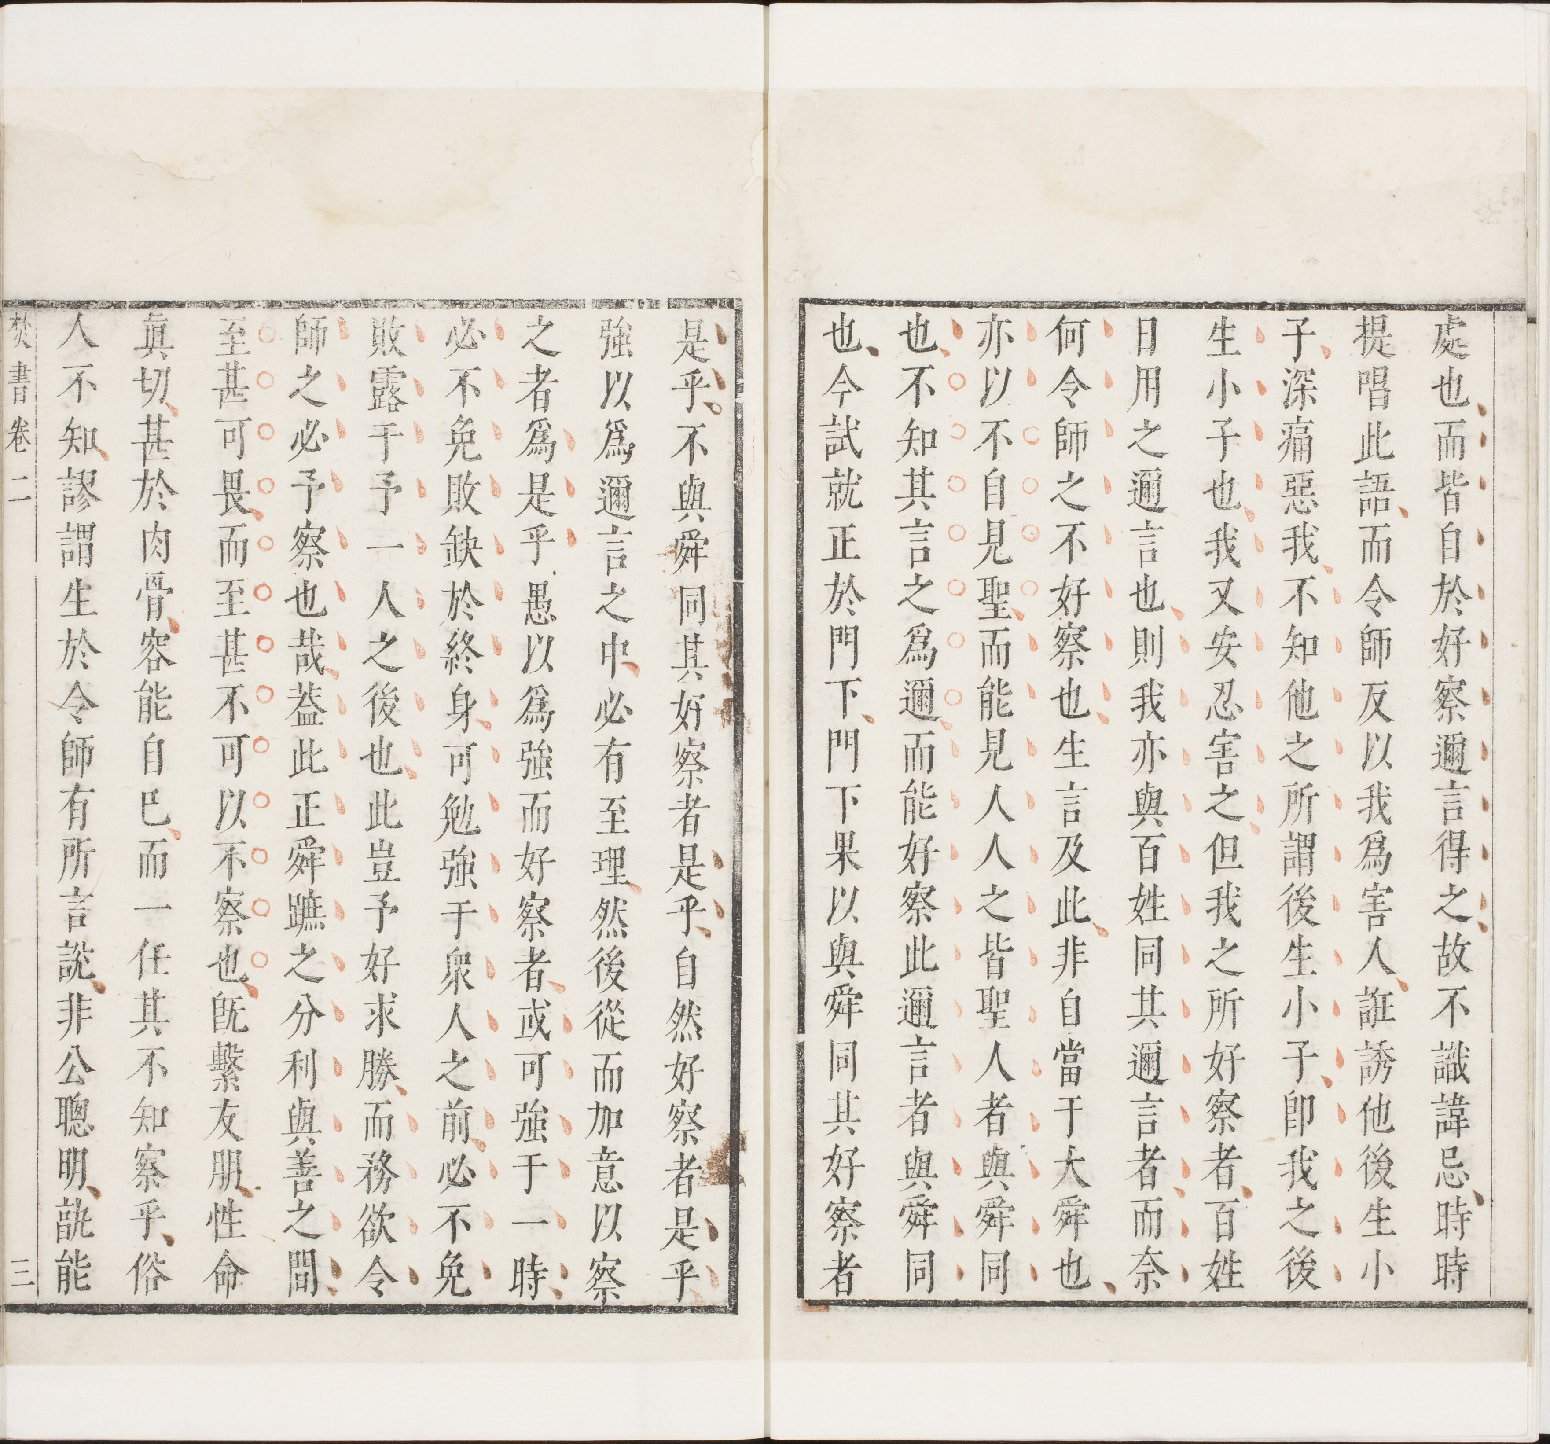 處也而皆自於好察邇言得之故不識諱忌時時
提唱此語而令師反以我爲害人誑誘他後生小
子深痛惡我不知他之所謂後生小子卽我之後
生小子也我又安忍害之但我之所好察者百姓
日用之邇言也則我亦與百姓同其邇言者而奈
何令師之不好察也生言及此非自當于大舜也
亦以不自見聖而能見人人之皆聖人者與舜同
也不知其言之爲邇而能好察此邇言者與舜同
也今試就正於門下門下果以與舜同其好察者
是乎不與舜同其好察者是乎自然好察者是乎
強以爲邇言之中必有至理然後從而加意以察
之者爲是乎愚以爲強而好察者或可強于一時
必不免敗缺於終身可勉強于衆人之前必不免
敗露于予一人之後也此豈予好求勝而務欲令
師之必予察也哉蓋此正舜蹠之分利與善之間
至甚可畏而至甚不可以不察也旣繫友朋性命
眞切甚於肉骨容能自已而一任其不知察乎俗
人不知謬謂生於令師有所言說非公聰明孰能
焚書卷二
三